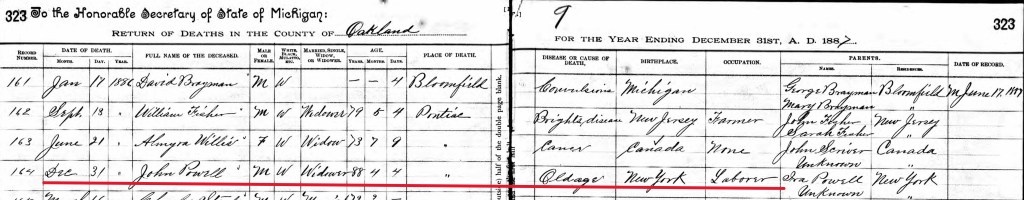 323 To the Honorable Secretary of State of Michigan: 9 323
RETURN OF DEATHS IN THE COUNTY OF Oakland FOR THE YEAR ENDING DECEMBER 31ST, A. D. 1887.
RECORD NUMBER. DATE OF DEATH. MONTH. DAY. YEAR. FULL NAME OF THE DECEASED. MALE OR FEMALE. WHITE, BLACK, MULATTO, ETC. MARRIED, SINGLE, WIDOW, OR WIDOWER. AGE. YEARS. MONTHS. DAYS. PLACE OF DEATH. DISEASE, OR CAUSE OF DEATH. BIRTHPLACE. OCCUPATION. PARENTS. NAMES. RESIDENCE. DATE OF RECORD.
161 Jan 17 1886 David Brayman M W - - 4 Bloomfield Convulsions Michigan George Brayman Bloomfield M June 17. 1887
Mary Brayman "
162 Sept. 13 " William Fisher M W Widower 79 5 4 Pontiac Brights disease New Jersey Farmer John Fisher New Jersey
Sarah Fisher "
163 June 21 " Almyra Willis F W Widow 73 7 9 " Cancer Canada None John Scriver Canada
Unknown "
164 Dec 31 " John Powell M W Widower 88 4 4 " Oldage New York Laborer Ira Powell New York
Unknown "
half of the double page blank.